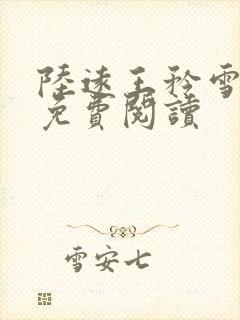 陸遠王矜雪
免費閱讀
雪安七